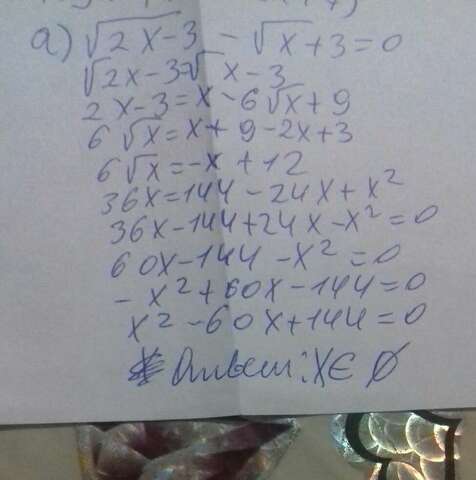 а) √2x-3 - √x+3=0
√2x-3=√x-3
2x-3=x-6√x+9
6√x=x+9-2x+3
6√x=-x+12
36x=144-24x+x²
36x-144+24x-x²=0
60x-144-x²=0
-x²+60x-144=0
x²-60x+144=0
Ответ: X∈ ∅